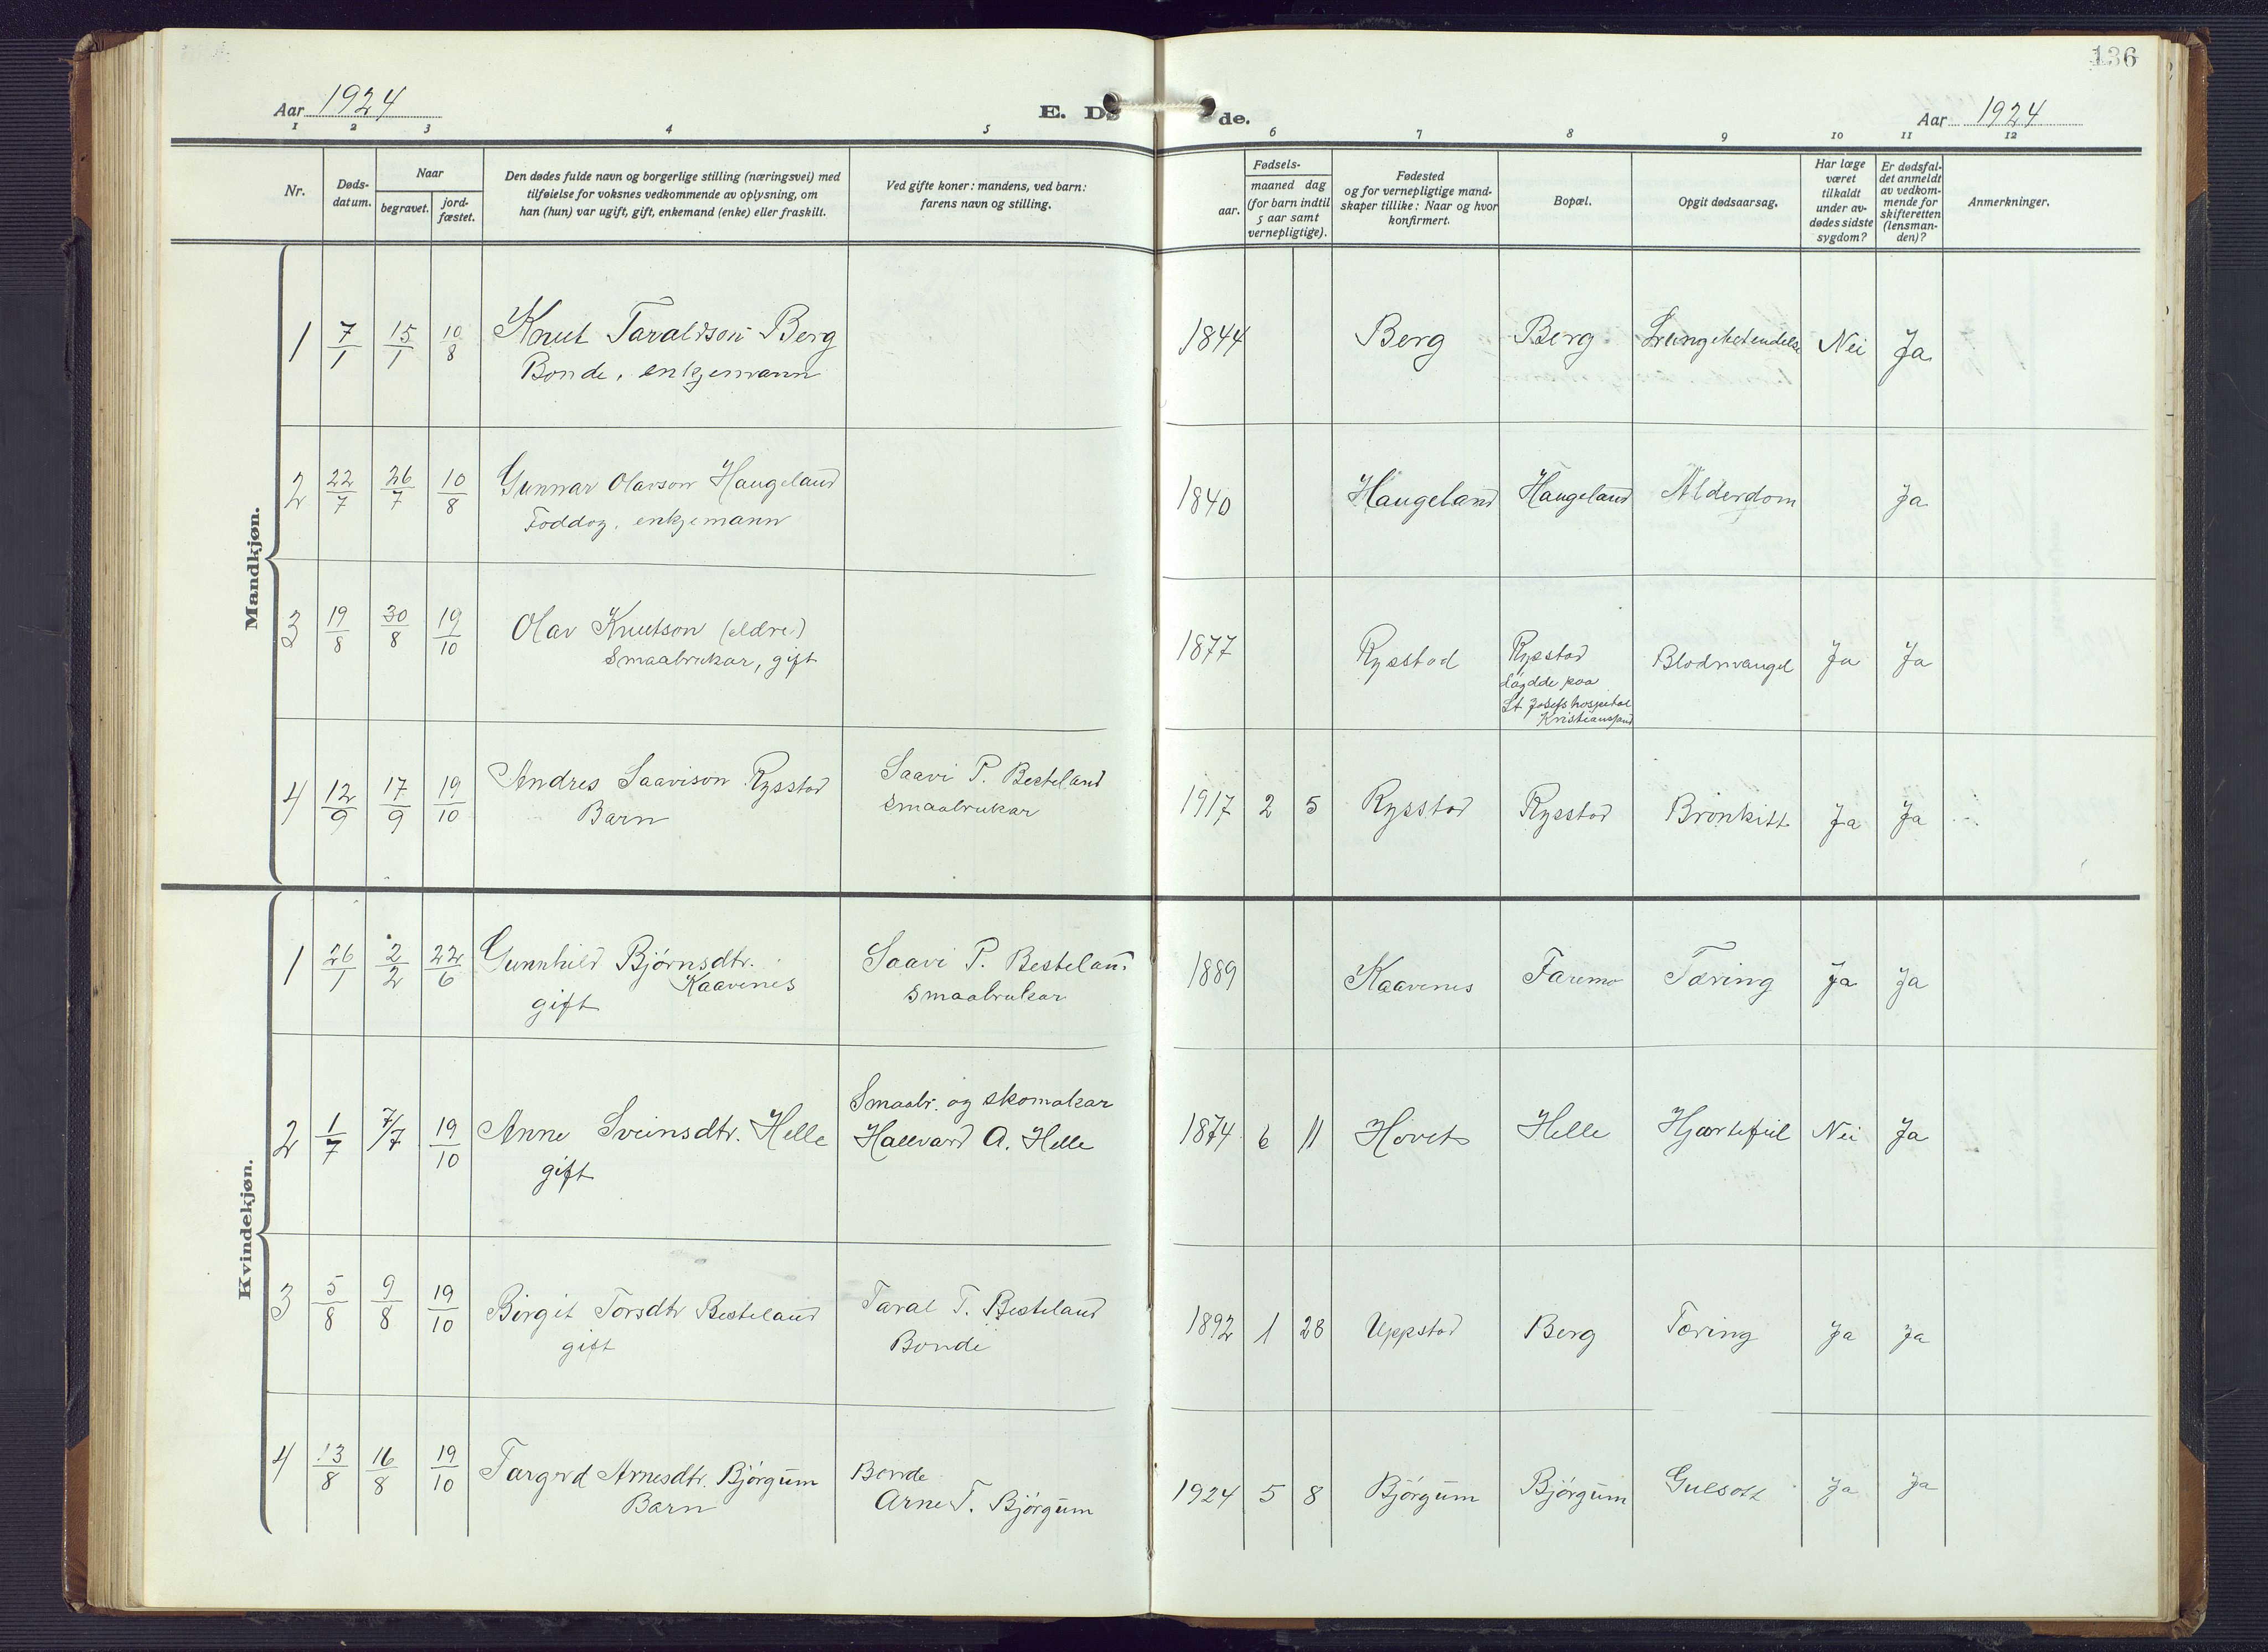 136
Aar 1924
E. Dø
de.
Aar 1924
1 2 3 4 5 6 7 8 9 10 11 12
Nr.
Døds-
datum.
Naar
begravet.
jord-
fæstet.
Den dødes fulde navn og borgerlige stilling (næringsvei) med
tilføielse for voksnes vedkommende av oplysning, om
han (hun) var ugift, gift, enkemand (enke) eller fraskilt.
Ved gifte koner: mandens, ved barn:
farens navn og stilling.
Fødsels-
aar.
maaned dag
(for barn indtil
5 aar samt
vernepligtige).
Fødested
og for vernepligtige mand-
skaper tillike: Naar og hvor
konfirmert.
Bopæl.
Opgit dødsaarsag.
Har læge
været
tilkaldt
under av-
dødes sidste
sygdom?
Er dødsfal-
det anmeldt
av vedkom-
mende for
skifteretten
(lensman-
den)?
Anmerkninger.
Mandkjøn.
1 7/1 15/1 10/8 Knut Taraldson Berg 1844 Berg Berg Lungebetendelse Nei Ja
Bonde, enkjemann
2 22/7 26/7 10/8 Gunnar Olavson Haugeland 1840 Haugeland Haugeland Alderdom Ja
Foddog, enkjemann
3 19/8 30/8 19/10 Olav Knutson (eldre) 1877 Rysstad Rysstad Blodmangel Ja Ja
Smaabrukar, gift
døydde paa
St Josefs hospital
Kristiansand
4 12/9 17/9 19/10 Andres Saavison Rysstad Saavi P. Besteland 1917 2 5 Rysstad Rysstad Bronkitt Ja Ja
Barn smaabrukar
Kvindekjøn.
1 26/1 2/2 22/6 Gunnhild Bjørnsdtr. Saavi P. Besteland 1889 Kaavenes Faremo Tæring Ja Ja
Kaavenes
gift smaabrukar
2 1/7 7/7 19/10 Anne Sveinsdtr. Helle Smaabr. og skomakar 1874 6 11 Hovet Helle Hjartefeil Nei Ja
Hallvard A. Helle
gift
3 5/8 9/8 19/10 Birgit Torsdtr Besteland Taral T. Besteland 1892 1 28 Uppstad Berg Tæring Ja Ja
gift Bonde
4 13/8 16/8 19/10 Targerd Arnesdtr. Bjørgum Bonde 1924 5 8 Bjørgum Bjørgum Gulsott Ja Ja
Barn Arne T. Bjørgum